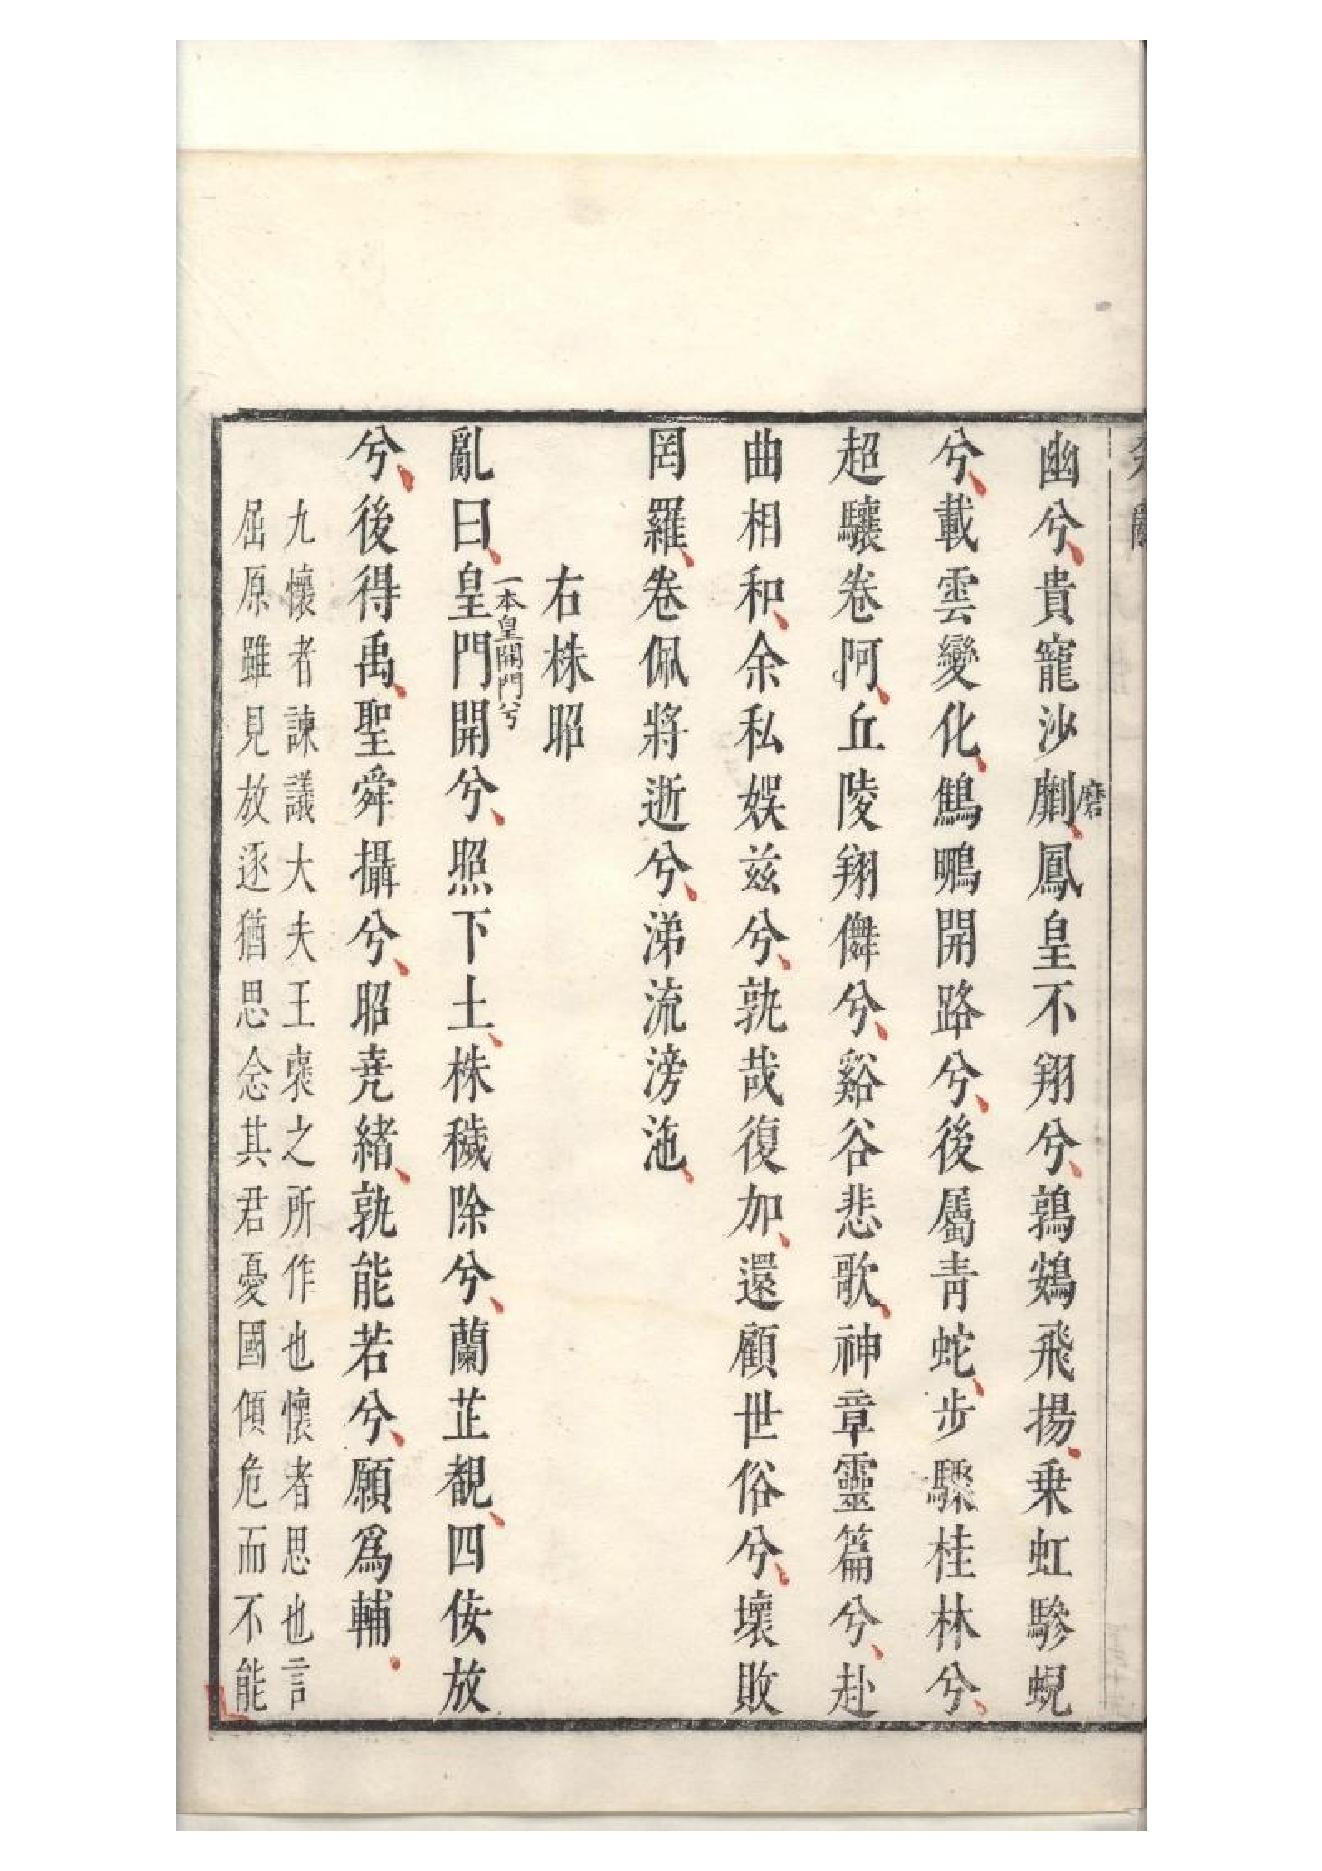 幽兮貴寵沙劘鳳皇不翔兮鶉鴳飛揚乗虹驂蜺
磨
兮載雲變化鷦鵬開路兮後屬青蛇步驟桂林兮
超驤卷阿丘陵翔儛兮谿谷悲歌神章靈篇兮赴
曲相和余私娱兹兮孰哉復加還顧世俗兮壞敗
罔羅卷佩將逝兮涕流滂沲
右株昭
亂曰皇門開兮照下土株穢除兮蘭芷覩四佞放
一本皇開門兮
兮後得禹聖舜攝兮昭尭緒孰能若兮願爲輔
九懷者諫議大夫王襃之所作也懷者思也言
屈原雖見放逐猶思念其君憂國傾危而不能